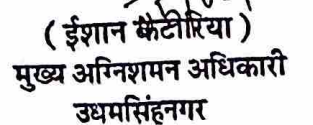 ( ईशान कैटीरिया )
मुख्य अग्निशमन अधिकारी
उधमसिंहनगर